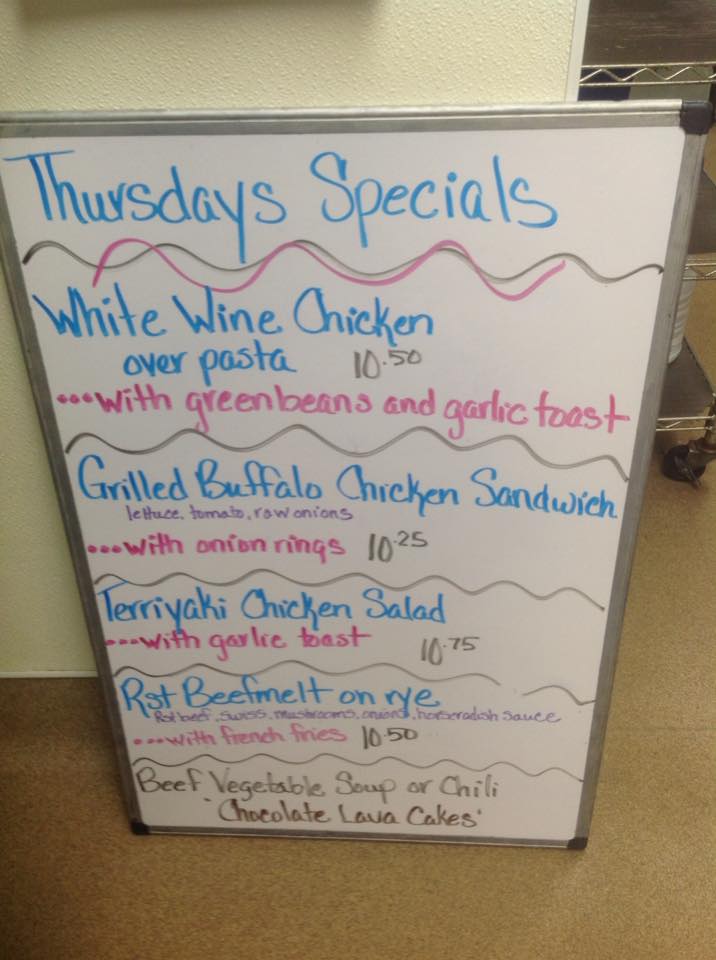 Thursdays Specials
White Wine Chicken
over pasta 10.50
...with greenbeans and garlic toast
Grilled Buffalo Chicken Sandwich
lettuce, tomato, raw onions
...with onion rings 10.25
Terriyaki Chicken Salad
...with garlic toast 10.75
Rst Beefmelt on rye
Rst beef, swiss, mushrooms, onions, horseradish sauce
...with french fries 10.50
Beef Vegetable Soup or Chili
'Chocolate Lava Cakes'